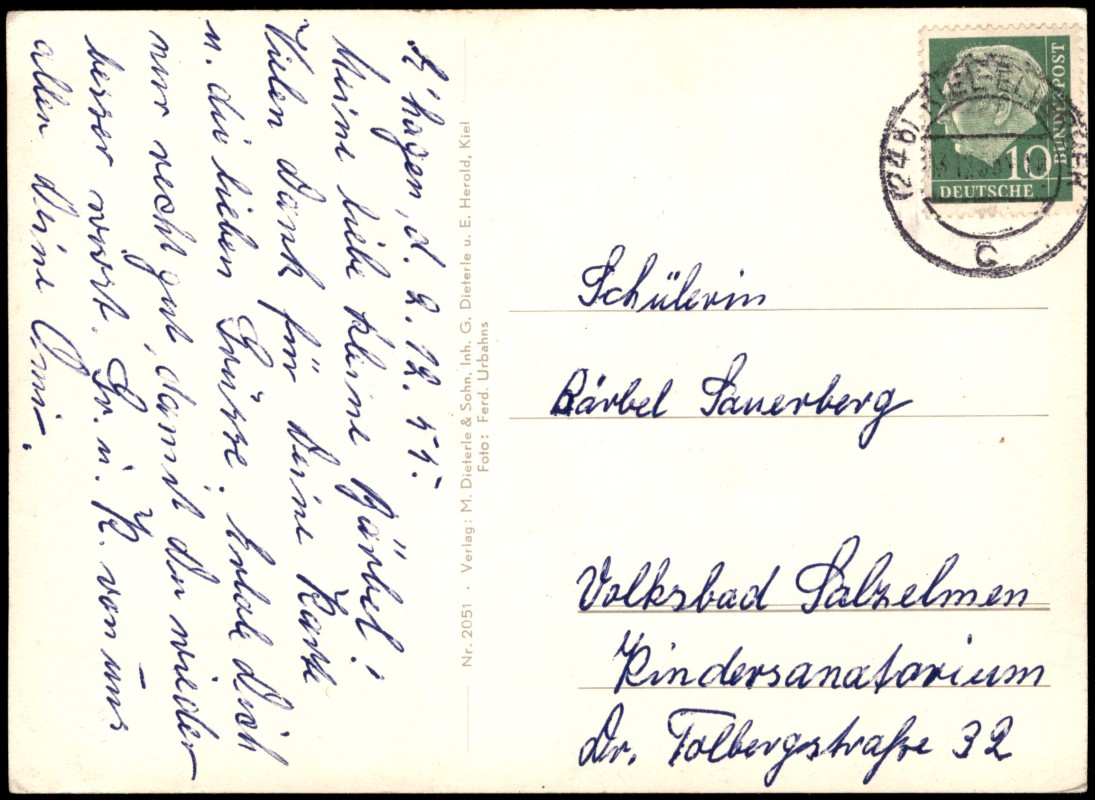 L'hagen, d. 2. 12. 55.
Meine liebe kleine Bärbel!
Vielen Dank für Deine Karte
u. die lieben Grüsse. Erhole Dich
nur recht gut, damit Du wieder
besser wirst. Gr. u. K. von uns
allen Deine Omi.
Nr. 2051 · Verlag: M. Dieterle & Sohn, Inh. G. Dieterle u. E. Herold, Kiel
Foto: Ferd. Urbahns
BUNDESPOST
10
DEUTSCHE
(24b)
C
Schülerin
Bärbel Sauerberg
Volksbad Salzelmen
Kindersanatorium
Dr. Tolbergstraße 32